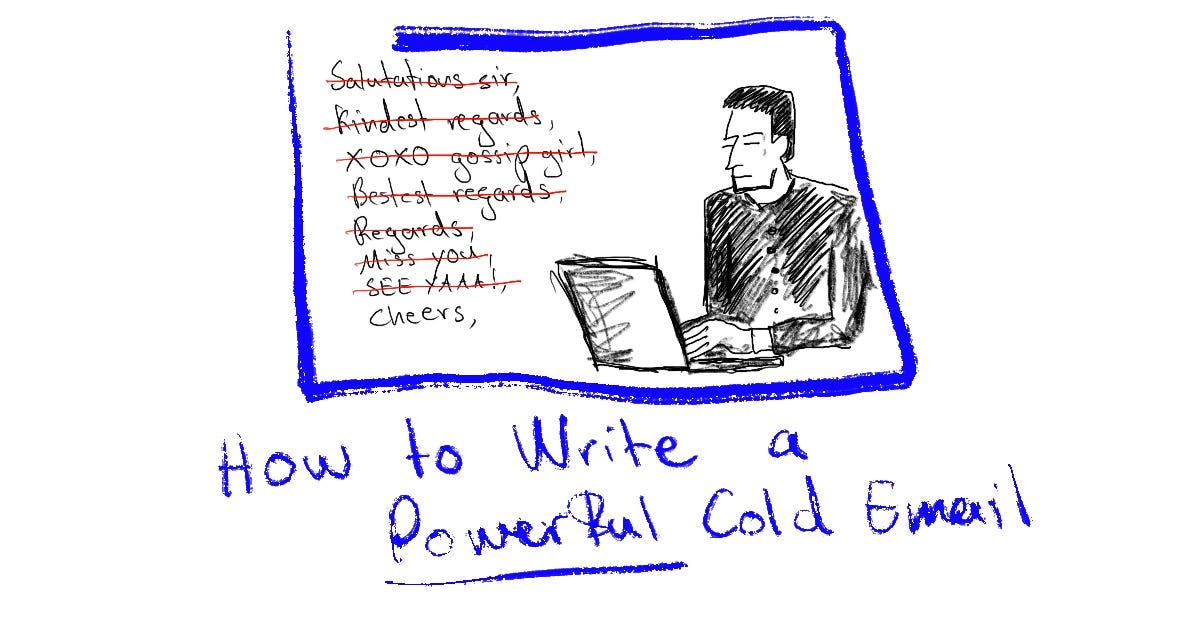 Salutations sir,
Kindest regards,
XOXO gossip girl,
Bestest regards,
Regards,
Miss you,
SEE YAAA!,
Cheers,
How to Write a
Powerful Cold Email